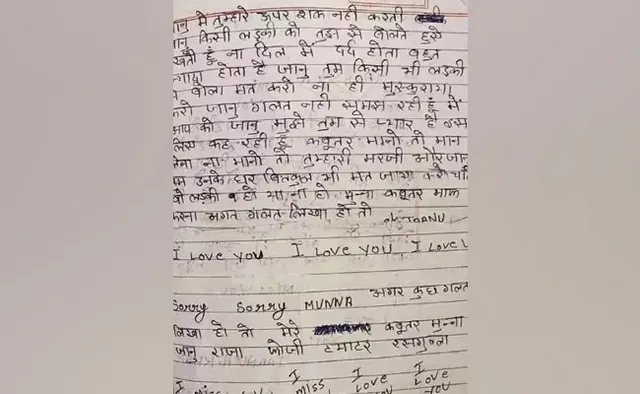 जानु मे तुम्हारे ऊपर शक नही करती
जानु किसी लड़की को तुझ से बोलते हुऐ
देखती हूँ ना दिल में दर्द होता बहुत
ज्यादा होता है जानु तुम किसी भी लड़की
बोला मत करो ना ही मुस्कुराया
करो जानु गलत नही समझ रही हूँ में
आप को जानु मुझे तुम से प्यार है इस
लिए कह रही हूँ कबूतर मानो तो मान
लेना ना मानो तो तुम्हारी मरजी और जान
उनके घर बिलकुल भी मत जाया करो
वो लड़की हो या ना हो मुन्ना कबूतर माफ
करना अगर गलत लिखा हो तो
I LOVE YOU I LOVE YOU I LOVE
Sorry Sorry MUNNA अगर कुछ गलत
लिखा हो तो मेरे कबूतर मुन्ना
जानु राजा टमाटर रसगुल्ला
I I I
MISS LOVE LOVE